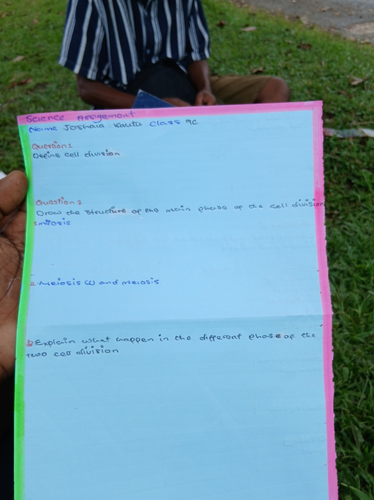 Science Assgement
Name Joshaia Kauta Class 9C
Question 1
Define cell division
Question 2
Draw the structure of the main phase of the cell division
1 mitosis
2 Meiosis (1) and meiosis
b Explain what happen in the different phase of the
two cell division